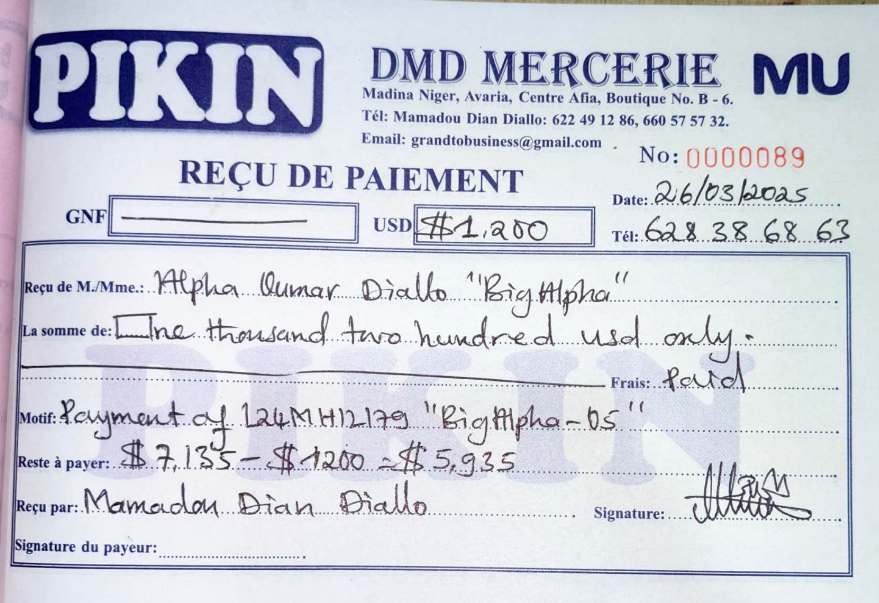 PIKIN
DMD MERCERIE
MU
Madina Niger, Avaria, Centre Afia, Boutique No. B - 6.
Tél: Mamadou Dian Diallo: 622 49 12 86, 660 57 57 32.
Email: grandtobusiness@gmail.com
No: 0000089
REÇU DE PAIEMENT
Date: 26/03/2025
GNF
USD $1.200
Tél: 628 38 68 63
Reçu de M./Mme.: Alpha Oumar Diallo "BigAlpha"
La somme de: One thousand two hundred usd only.
Frais: Paid
Motif: Payment of L24MH12179 "BigAlpha-05"
Reste à payer: $7,135 - $1200 = $5,935
Reçu par: Mamadou Dian Diallo
Signature:
Signature du payeur:
PIKIN